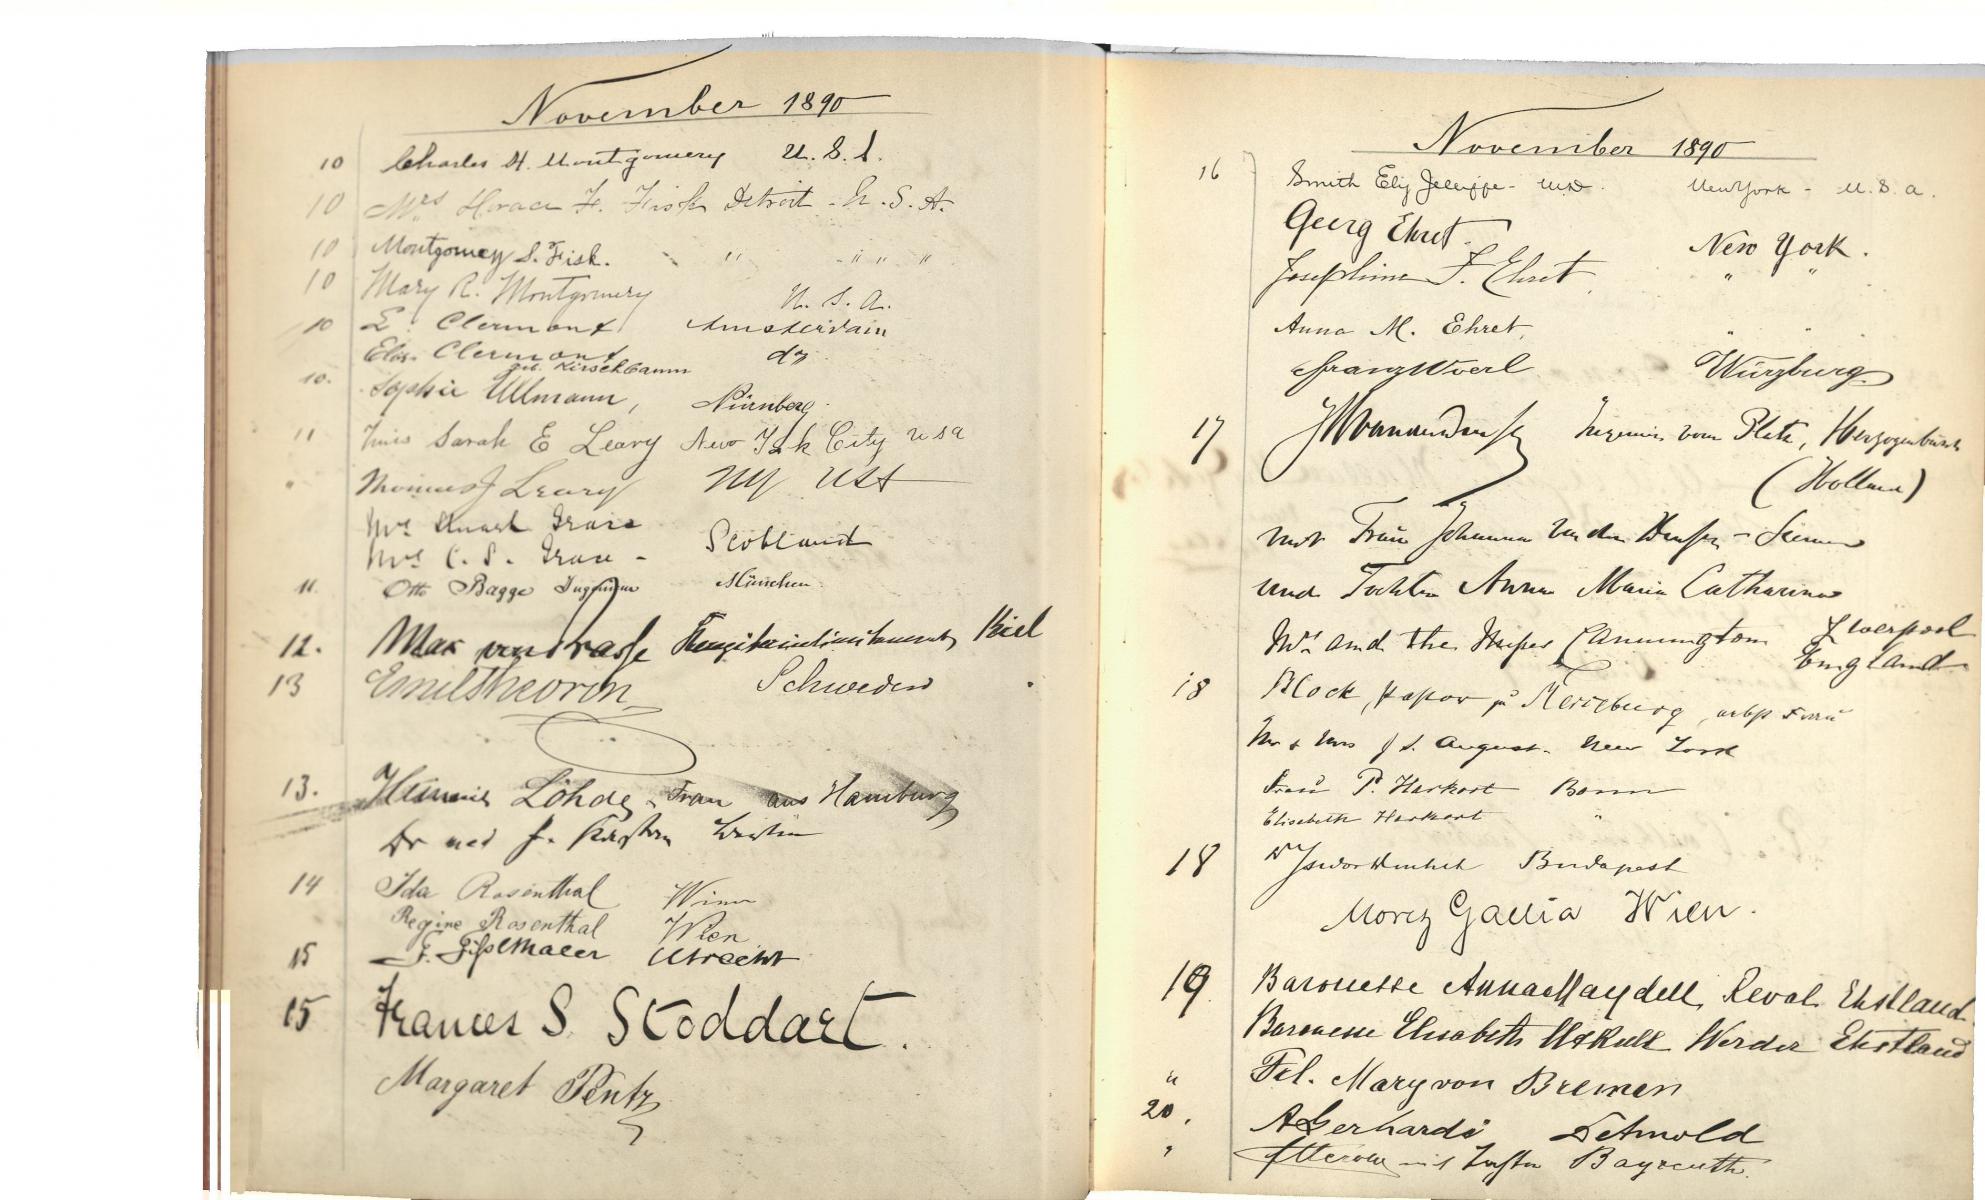 November 1890
10 Charles H. Montgomery U. S. A.
10 Mrs Horace F. Fisk Detroit - U. S. A.
10 Montgomery S. Fisk. " " " "
10 Mary R. Montgomery U. S. A.
10 E. Clermont Amsterdam
Elis. Clermont do
geb. Kirschbaum
10. Sophie Ullmann, Nürnberg.
11 Miss Sarah E Leary New York City U S A
" Thomas J Leary NY USA
Mr
Mrs C. S. Scotland
11. Otto Bagge Ingenieur München.
12. Max von Kiel
13 Emil Theorin Schweden
13. Heinrich Löhde u. Frau aus Hamburg
Dr med J.
14 Ida Rosenthal Wien
Regine Rosenthal Wien
15 F. Utrecht
15 Frances S. Stoddart.
Margaret Pentz
November 1890
16 Smith Ely Jelliffe - MD. New York - U. S. A.
Georg Ehret. New York.
Josephine F. Ehret " "
Anna M. Ehret, " "
Franz Woerl Würzburg
17 vom Platz, Herzogenbusch
(Holland)
mit Frau Johanna van der
und Tochter Anna Maria Catharina
Mrs and the Misses Cannington Liverpool
England
18 Block, Pastor zu Merseburg, nebst Frau
Mr & Mrs J S. August. New York
Frau P. Harkort Bonn
Elisabeth Harkort "
18 Dr Isidor Budapest
Moriz Gallia Wien.
19 Baronesse Anna Maydell, Reval. Ehstland.
Baronesse Elisabeth Üxküll Werder Ehstland
" Frl. Mary von Bremen
20. A Gerhardi Detmold
" mit Tochter Bayreuth.